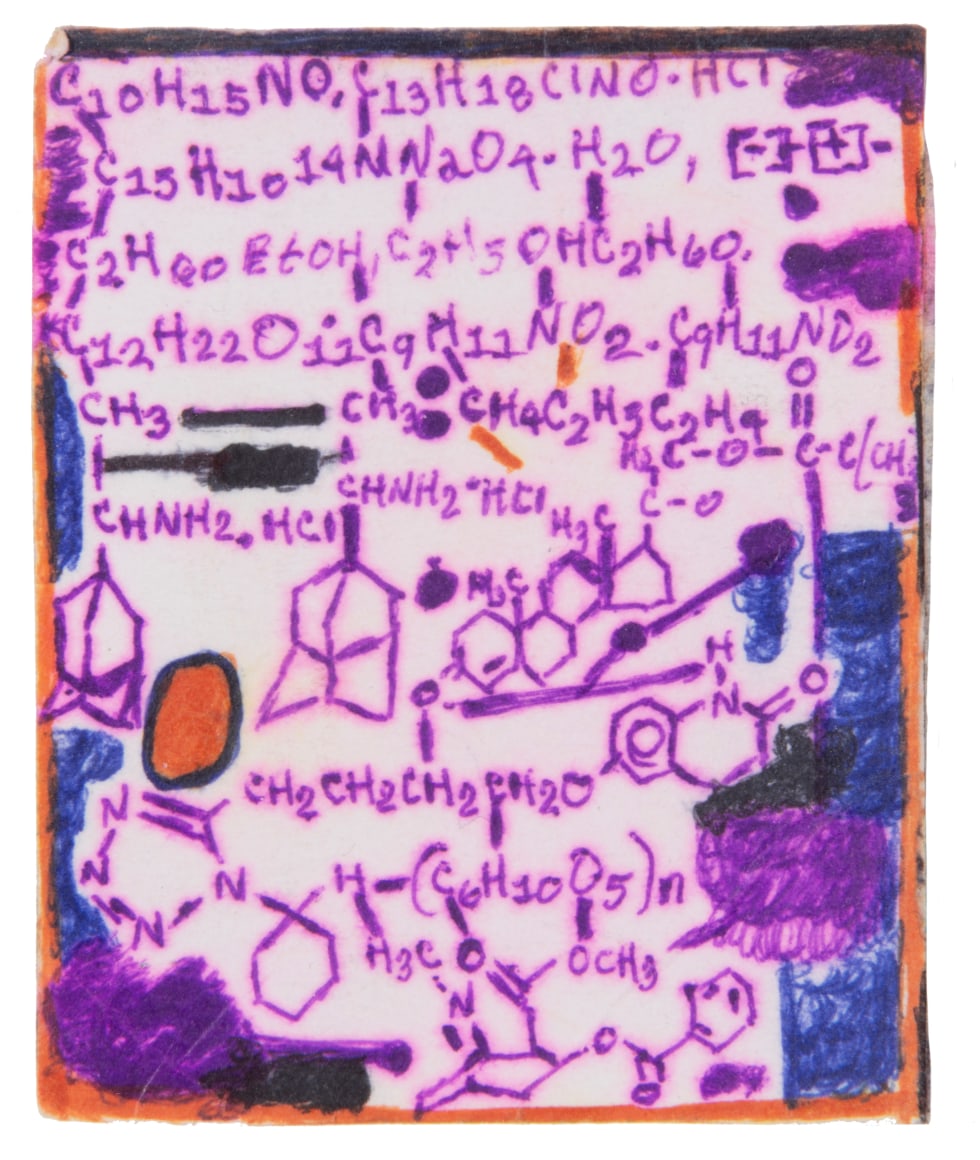 C10H15NO, C13H18ClNO·HCl
C15H1014NN2O4·H2O, [-]-[+]-
C2H60 EtOH, C2H5 OHC2H60.
C12H22O11C9H11NO2.C9H11NO2
CH3 CH3 CH4C2H5C2H4
O
H2C-O-C-C(CH3
C-O
CHNH2.HCl CHNH2·HCl
H3C
H3C
H
O N O
CH2CH2CH2CH2O
N
N N H-(C6H10O5)n
N
H3C O OCH3
N
O
O